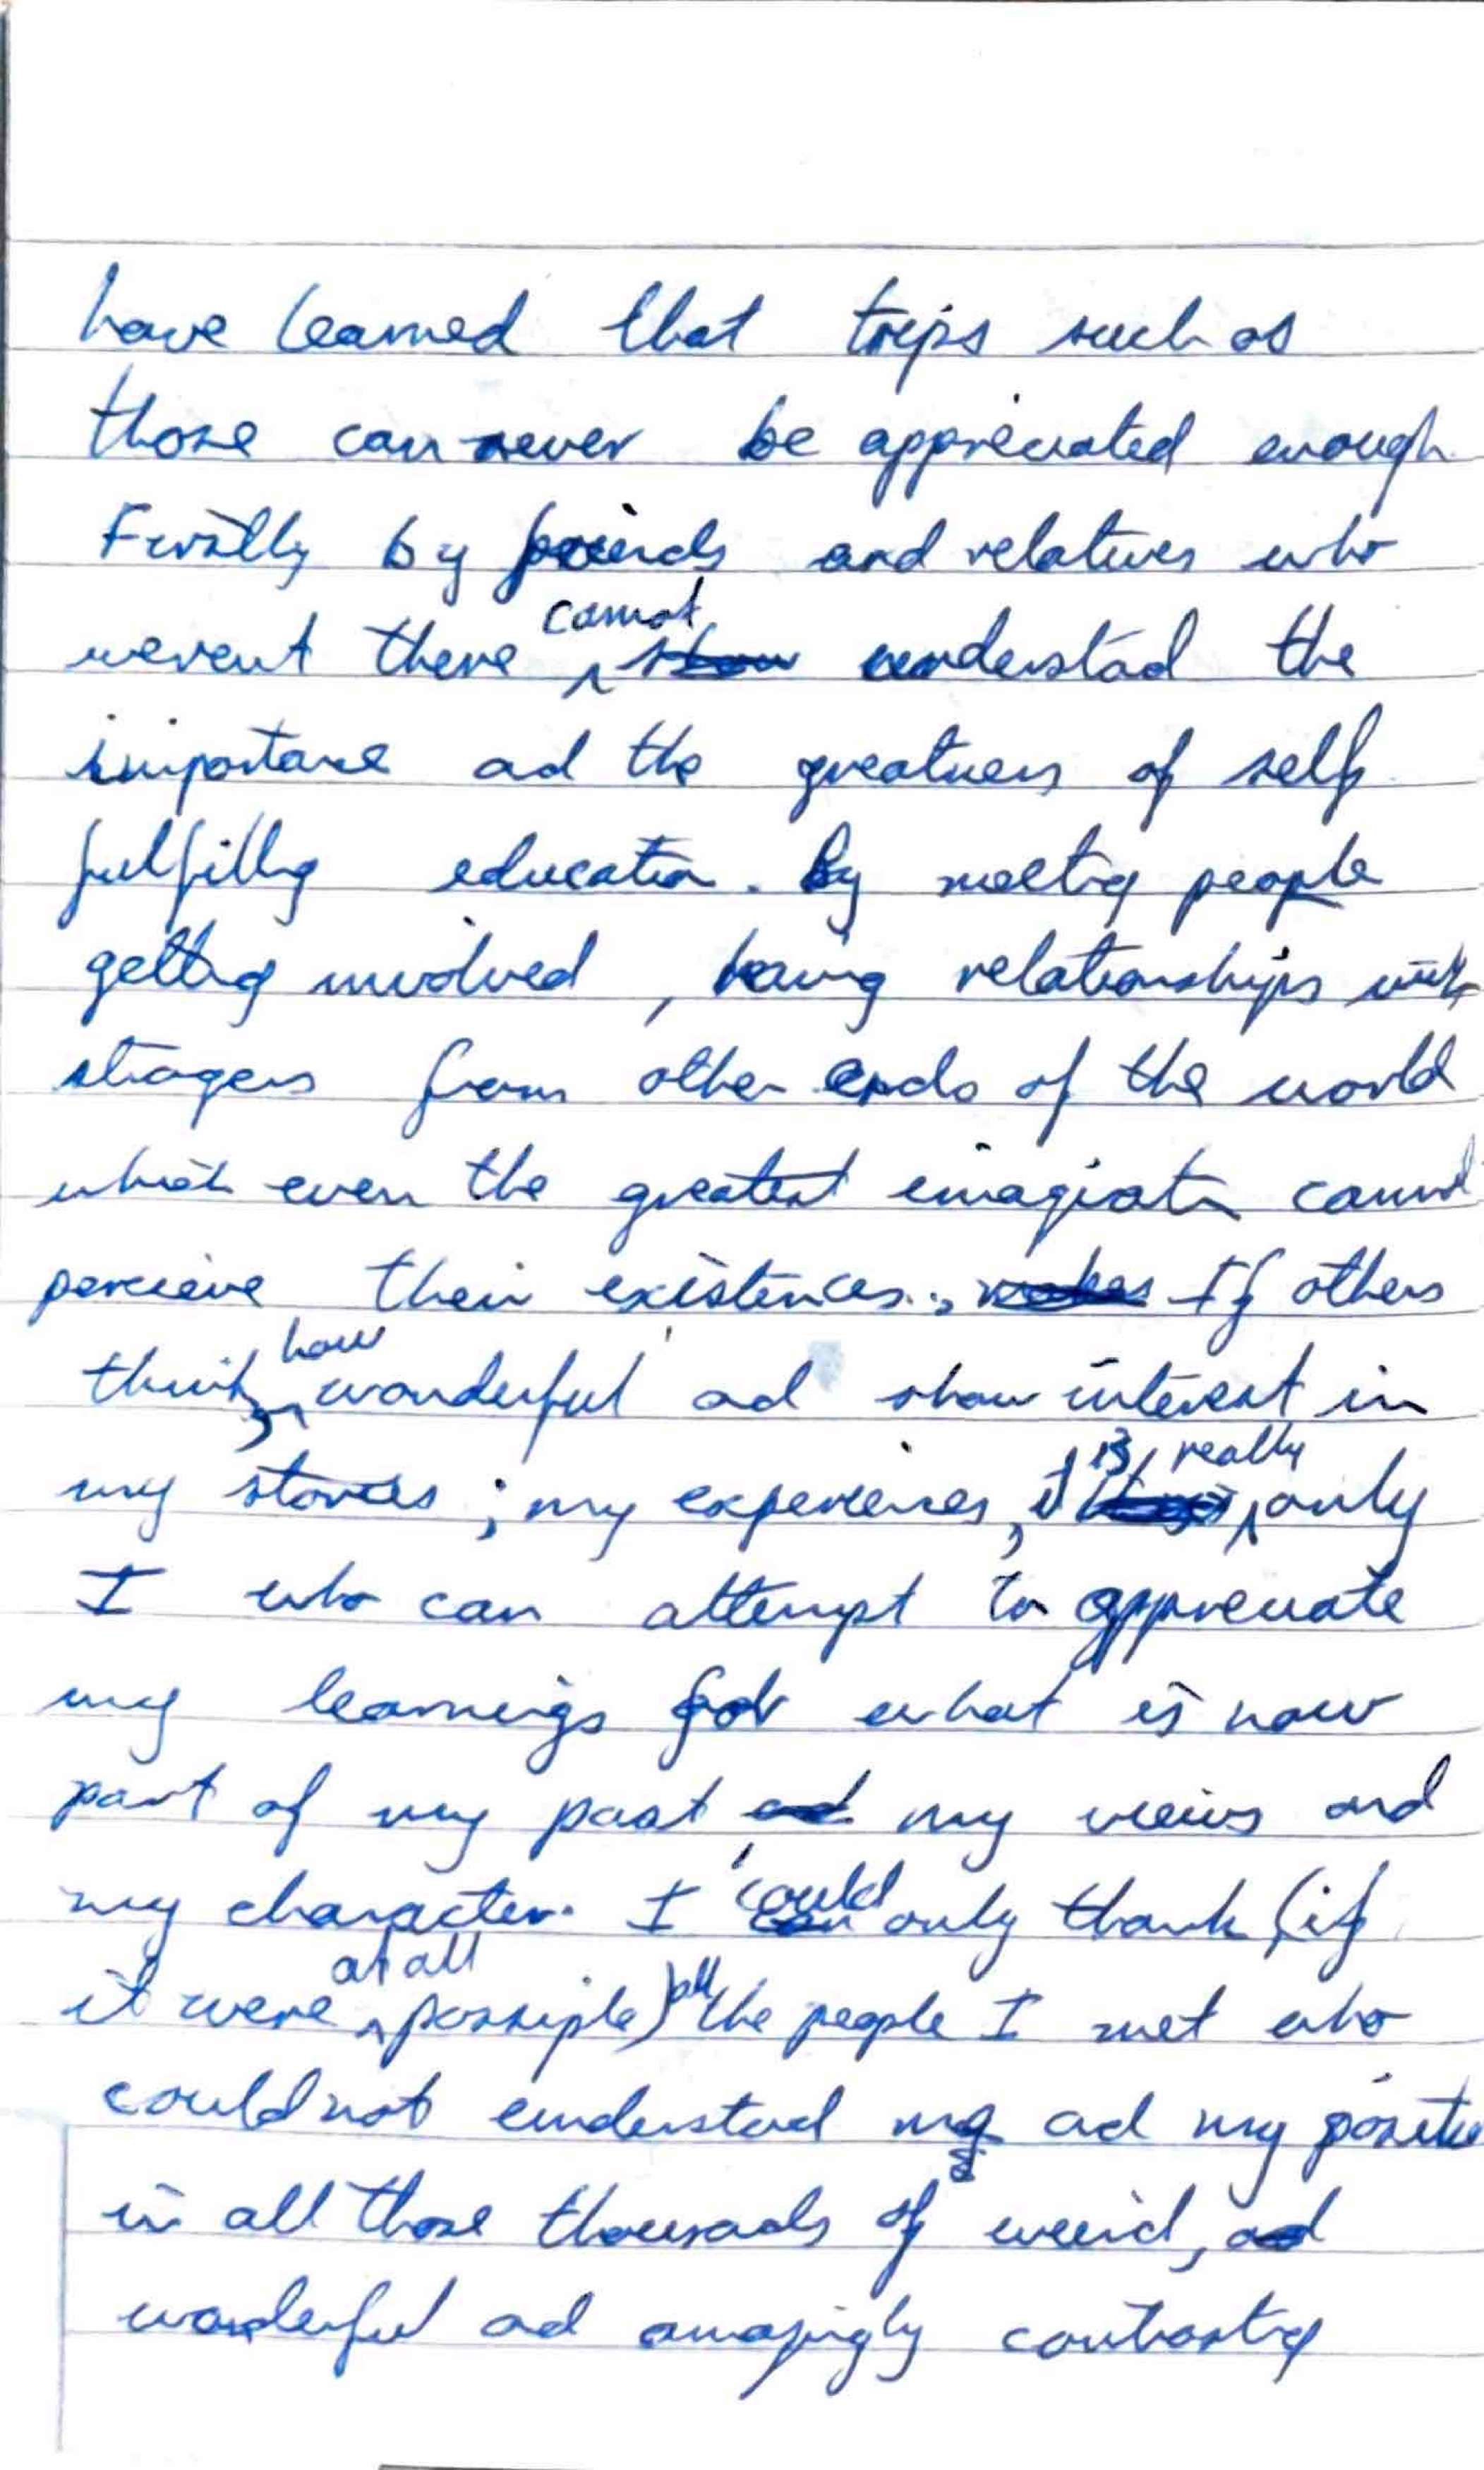 have learned that trips such as
those can never be appreciated enough
Firstly by friends and relatives who
werent there cannot understad the
importance ad the greatness of self
fulfillig education. By meetig people
gettig involved, having relationships with
stragers from other ends of the world
which even the greatest imagiation cannot
percieve their existences. If others
think, how wonderful ad show interest in
my stories; my experiences, it is really only
I who can attempt to appreciate
my learnings for what is now
part of my past, my views and
my character. I could only thank (if
it were at all possiple) all the people I met who
could not understad me ad my position
in all those thousads of weird,
wonderful ad amazingly contrastig